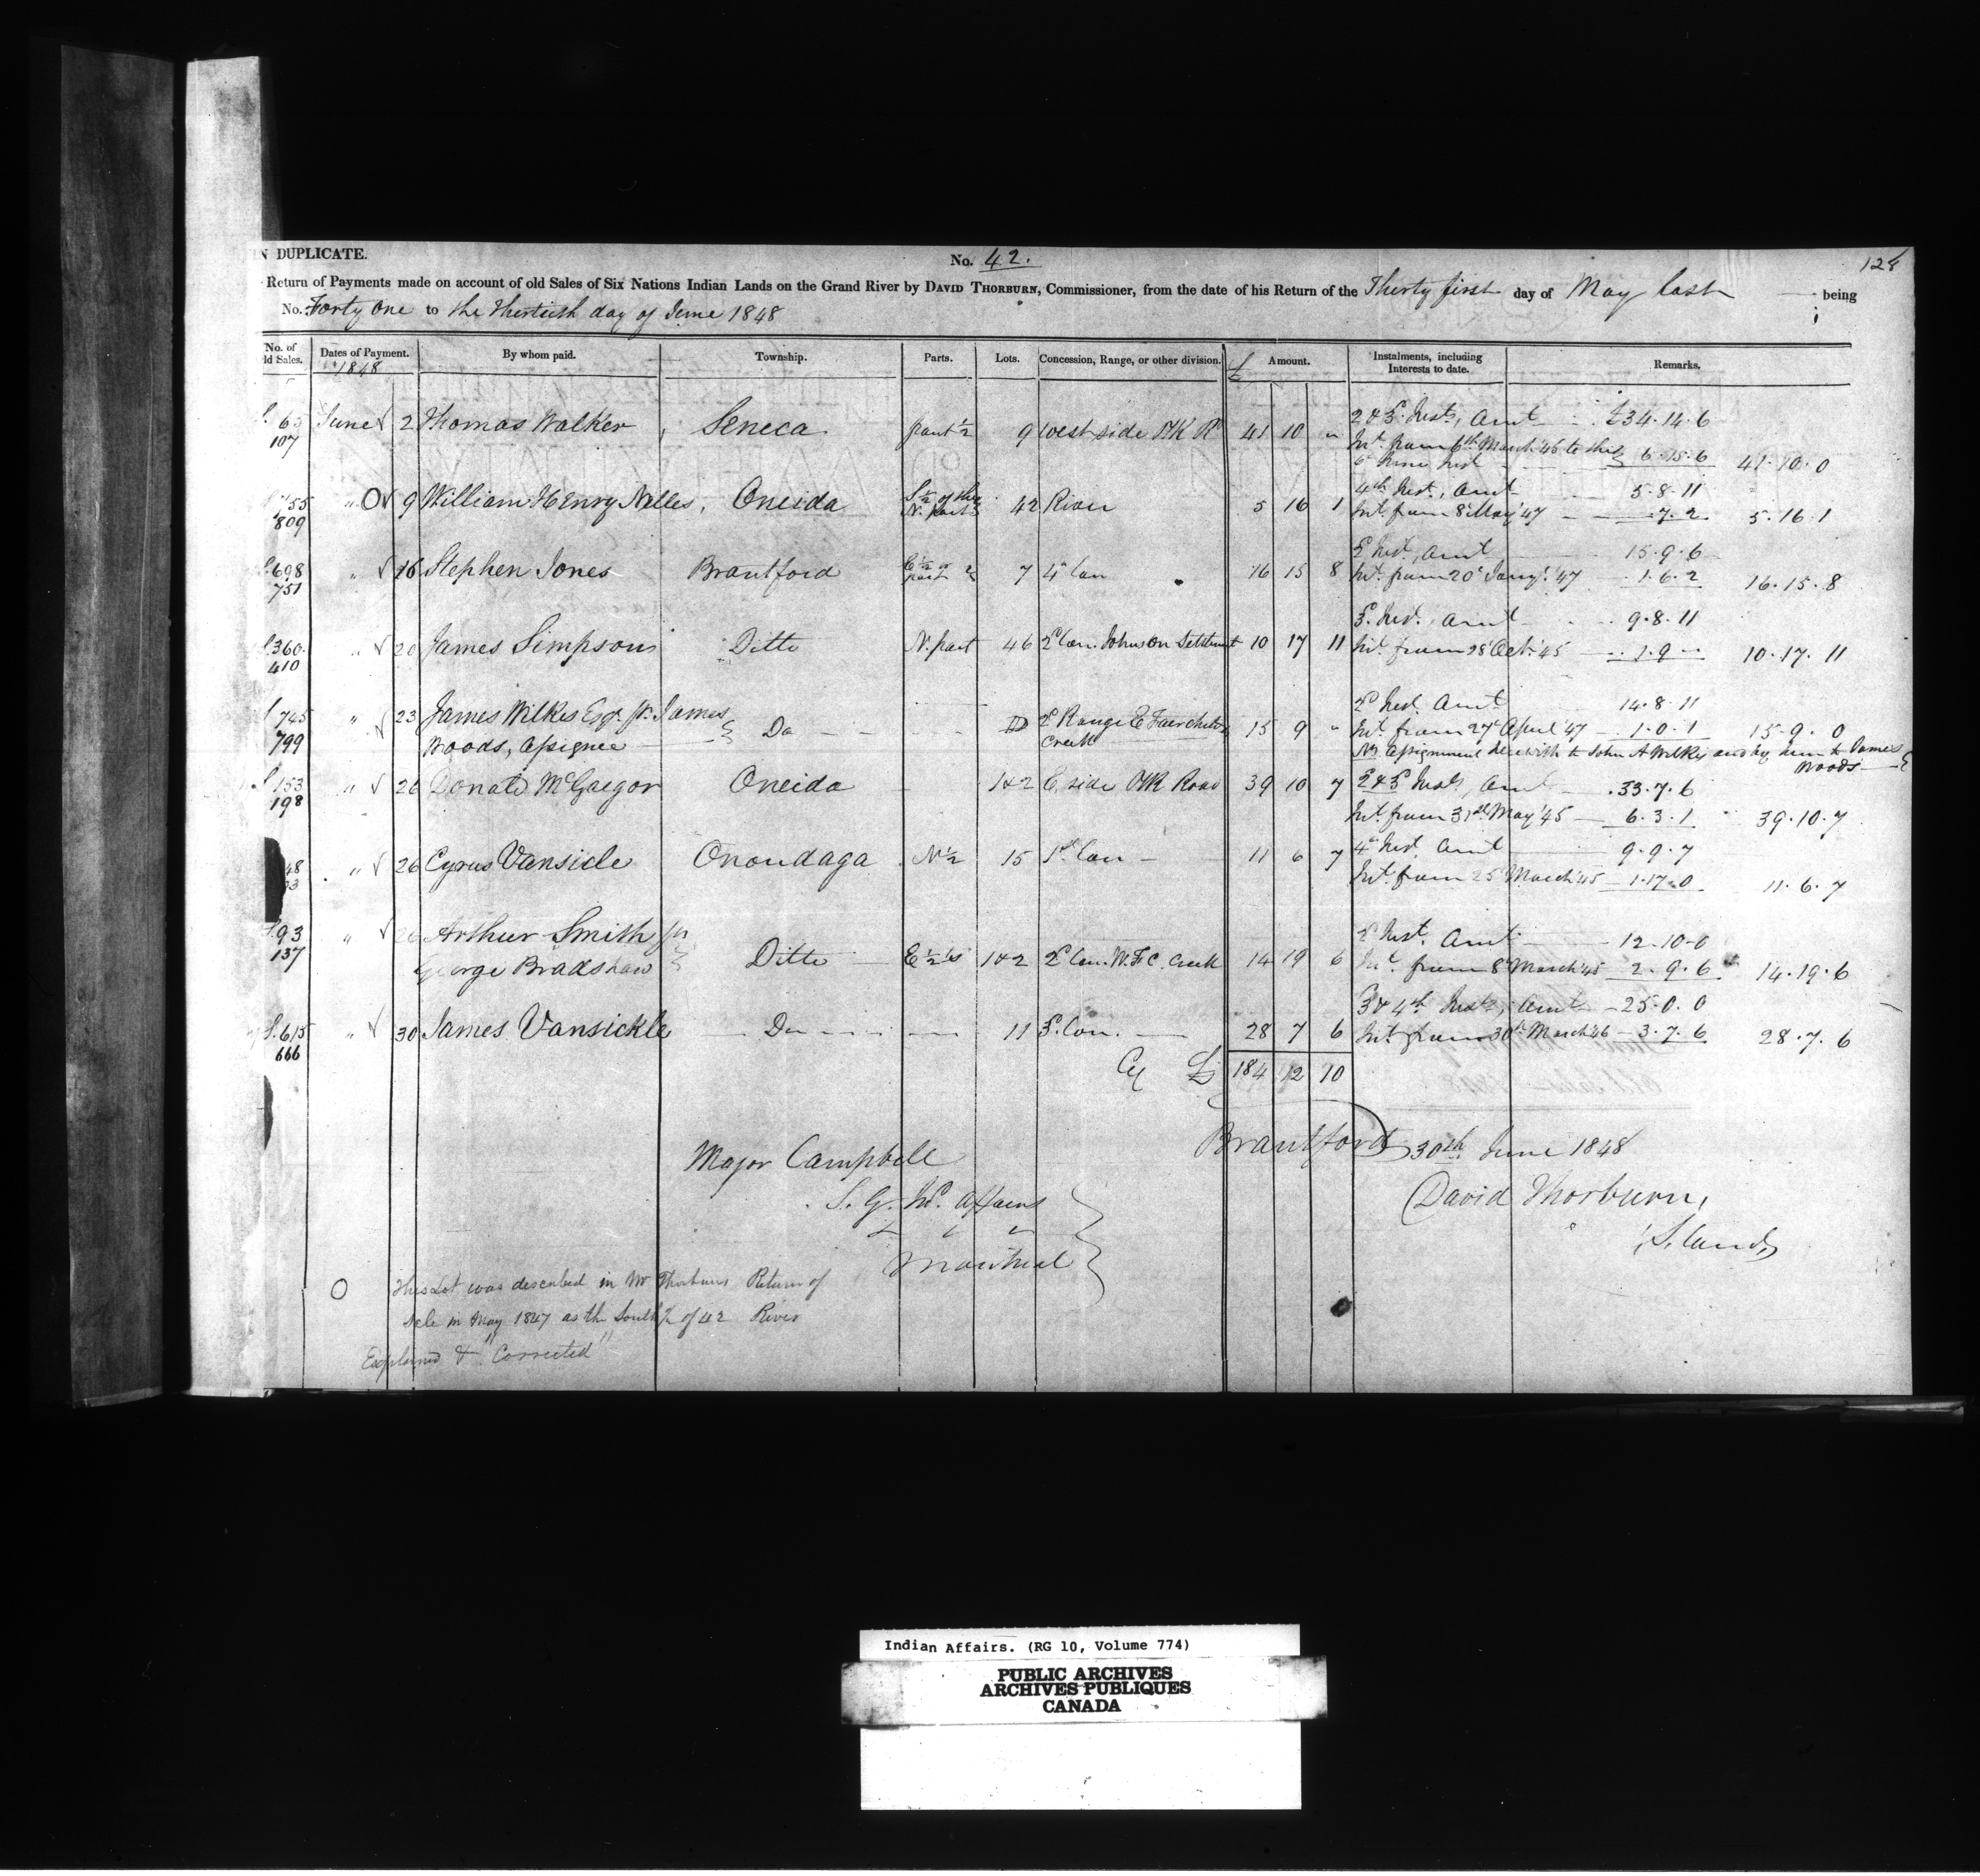 N DUPLICATE.
No. 42.
128
Return of Payments made on account of old Sales of Six Nations Indian Lands on the Grand River by DAVID THORBURN, Commissioner, from the date of his Return of the Thirty first day of May last being
No. Forty One to the thirtieth day of June 1848
No. of ld Sales. Dates of Payment. By whom paid. Township. Parts. Lots. Concession, Range, or other division. £ Amount. Instalments, including Interests to date. Remarks.
1848
65 June 2 Thomas Walker Seneca part ½ 9 West side PK R 41 10 " 2 & 3 Insts, Amt £34.14.6
107 Int. from 6th March '45 to the 6 June Inst 6.15.6 41.10.0
755 " O 9 William Henry Nelles, Oneida S ½ of the N. part 42 River 5 16 1 4th Inst., Amt 5.8.11
809 Int. from 8 May '47 7.2 5.16.1
698 " 16 Stephen Jones Brantford E ½ of part 7 4 Con 16 15 8 Inst, Amt 15.9.6
751 Int. from 20 Jany '47 1.6.2 16.15.8
360 " 20 James Simpson Ditto N. part 46 2d Con. Johnson Settlement 10 17 11 3 Inst. Amt 9.8.11
410 Int. from 28 Oct. '45 1.9 " 10.17.11
745 " 23 James Wilkes Esqr. pr. James Do 2d Range E Fairchilds 15 9 " 2d Inst. Amt 14.8.11
799 Woods, Assignee Creek Int. from 27 April '47 1.0.1 15.9.0
assignment herewith to John A Wilkes and by him to James Woods
153 " 26 Donald McGregor Oneida 1 & 2 E. side PK Road 39 10 7 2 & 3 Insts, Amt 33.7.6
198 Int. from 31st May '45 6.3.1 39.10.7
48 " 26 Cyrus Vansicle Onondaga N ½ 15 1st Con 11 6 7 4 Inst Amt 9.9.7
Int. from 25 March '45 1.17.0 11.6.7
93 " 26 Arthur Smith pr 2 Inst. Amt 12.10.0
137 George Bradshaw Ditto E ½'s 1 & 2 2d Con. W. F C. Creek 14 19 6 Int. from 8 March '45 2.9.6 14.19.6
3 & 4th Insts, Amt 25.0.0
S. 615 " 30 James Vansickle Do 11 3. Con. 28 7 6 Int. from 30th March '46 3.7.6 28.7.6
666
Cy £ 184 12 10
Brantford 30th June 1848
Major Campbell
S. G. In. Affairs
Montreal
David Thorburn,
O This Lot was described in Mr Thorburns Return of
Sale in May 1847 as the South ½ of 42 River
Explained & "Corrected"
Indian Affairs. (RG 10, Volume 774)
PUBLIC ARCHIVES
ARCHIVES PUBLIQUES
CANADA